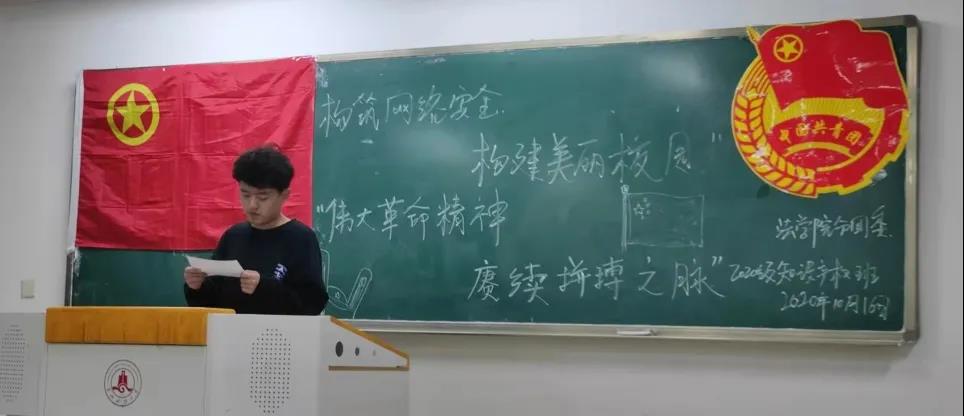 构筑网络安全
构建美丽校园"
"伟大革命精神
赓续拼搏之脉"
中国共青团
法学院分团委
2020级知识产权班
2020年10月16日